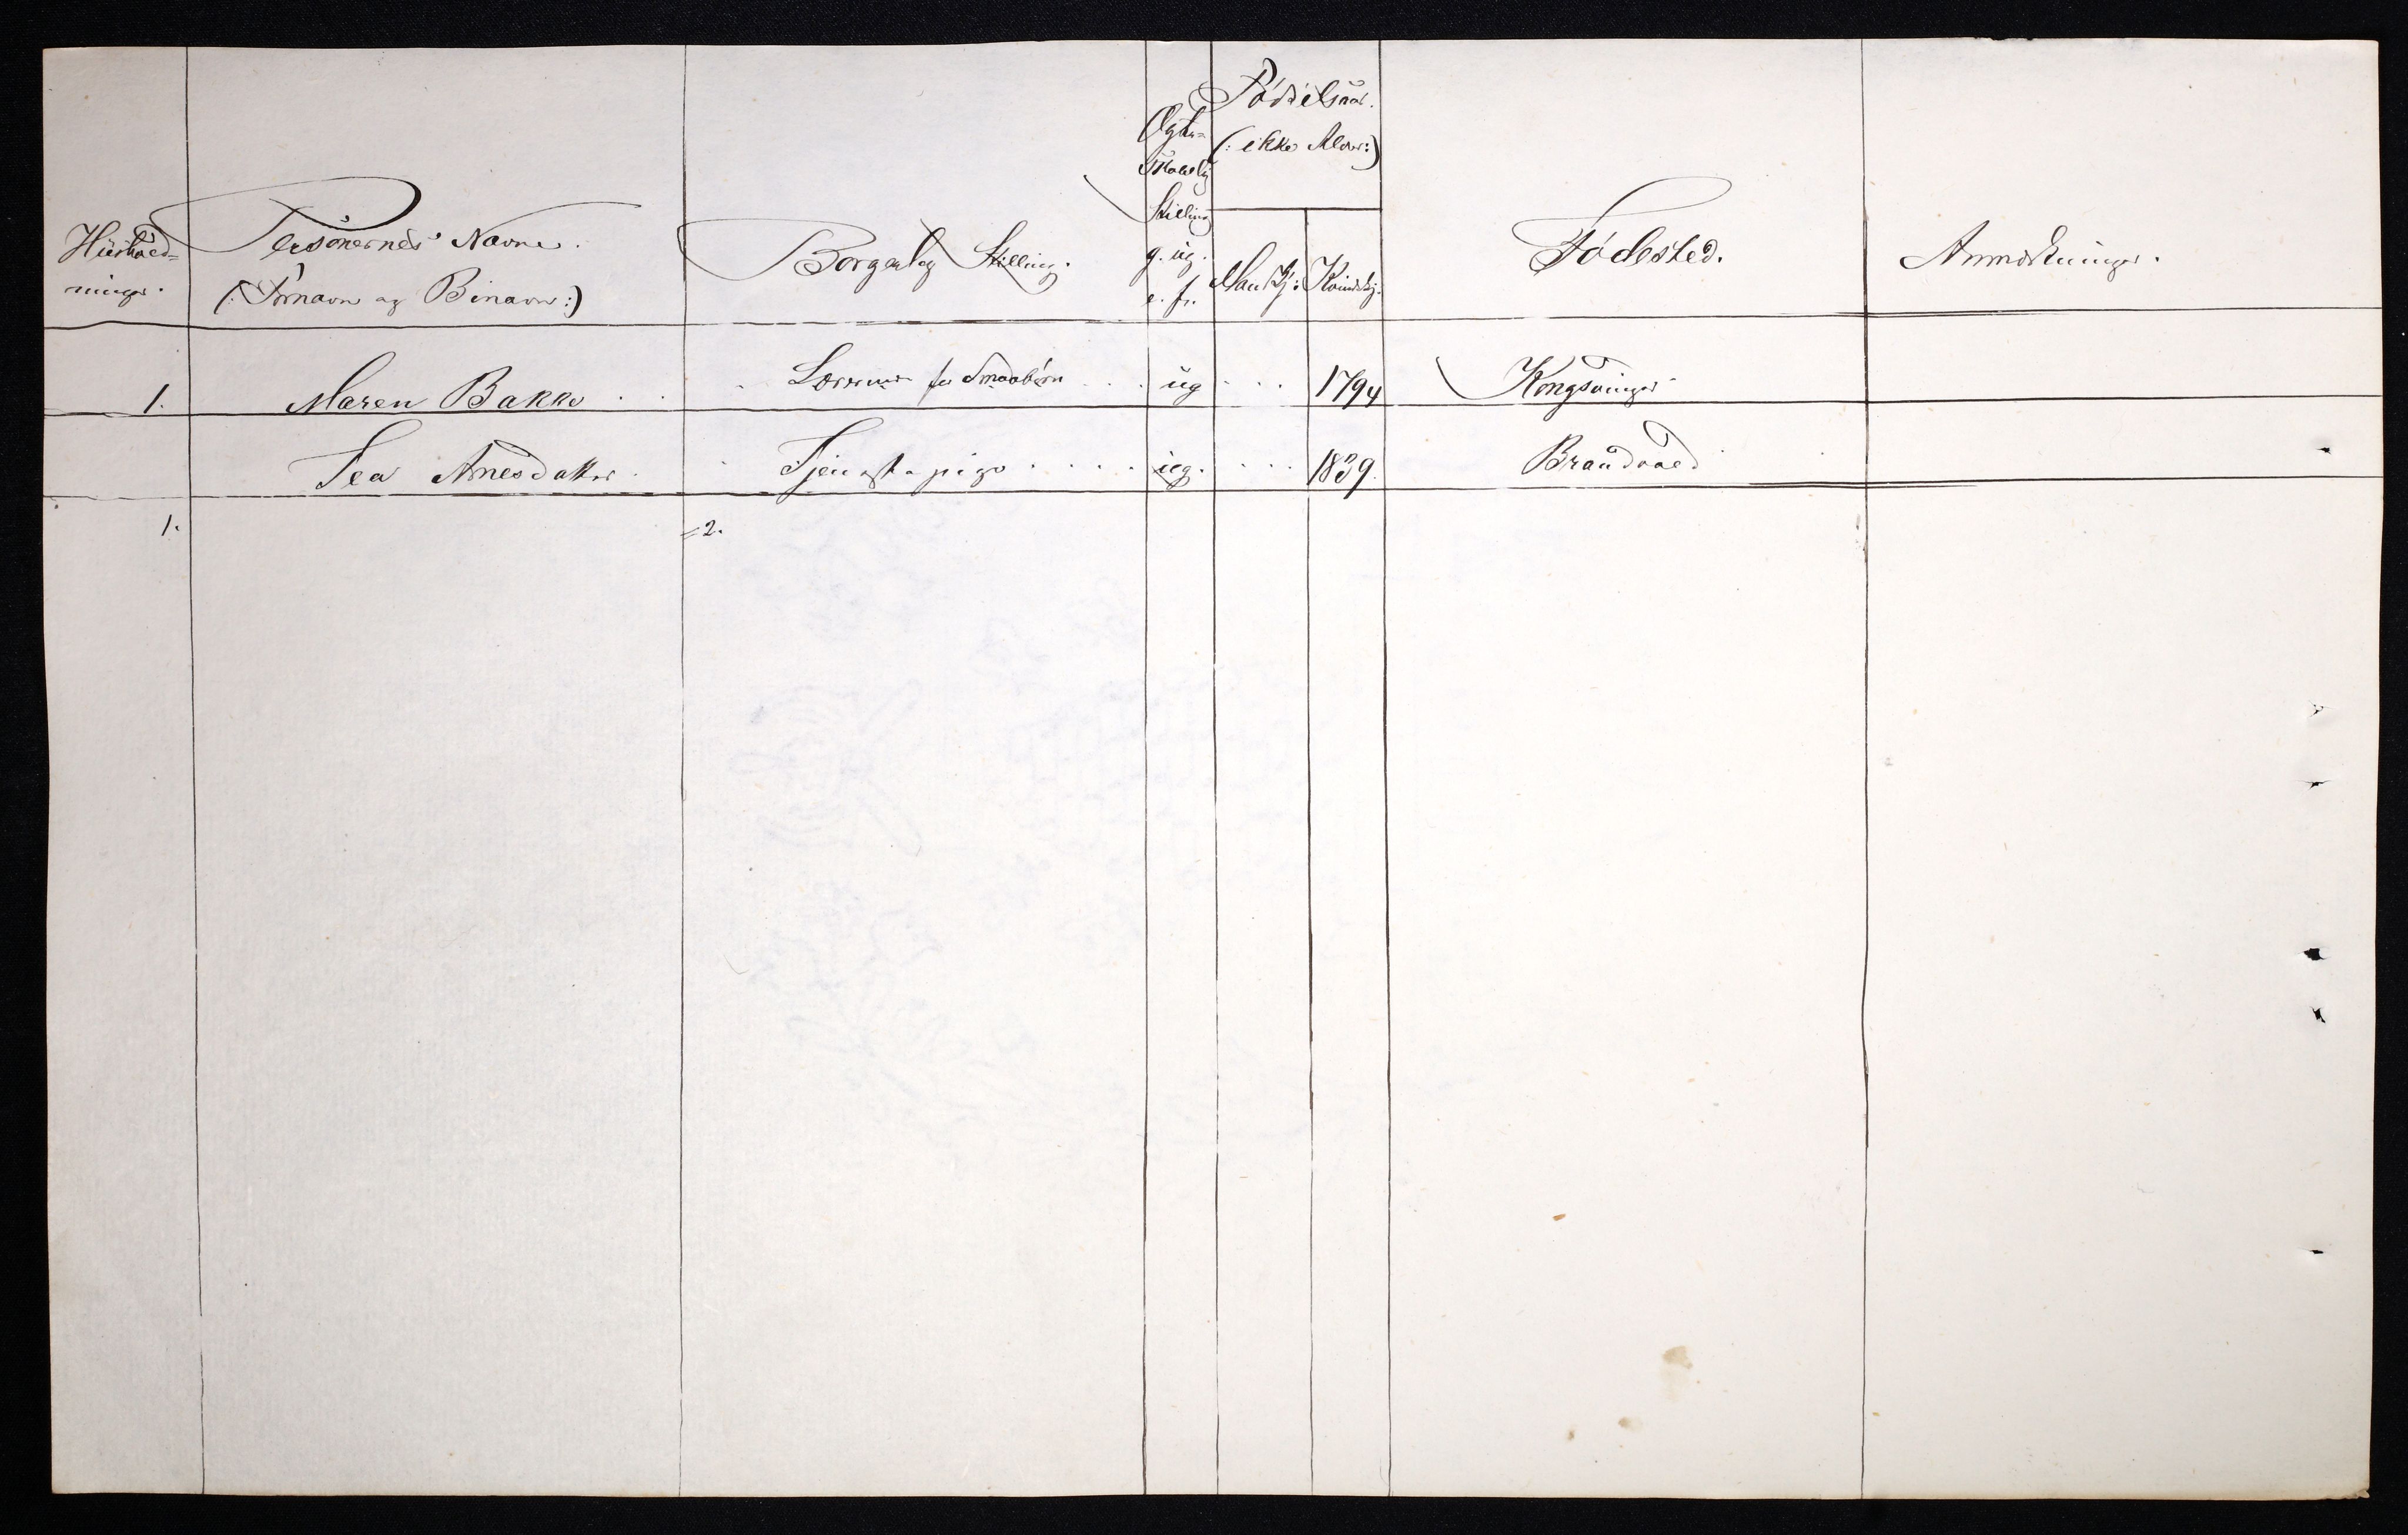 Husholdninger.
Personernes Navne.
(: Fornavn og Binavn :)
Borgerlig Stilling.
Ægte-
skabelig
Stilling
g. ug.
e. f.
Fødselsaar.
(: ikke Alder :)
Mankj:
Kvindekj.
Fødested.
Anmærkninger.
1. Maren Bakke Lærerinde for Smaabørn ug 1794 Kongsvinger
Tea Arnesdatter Tjenestepige ug. 1839. Brandvold
1. =2.